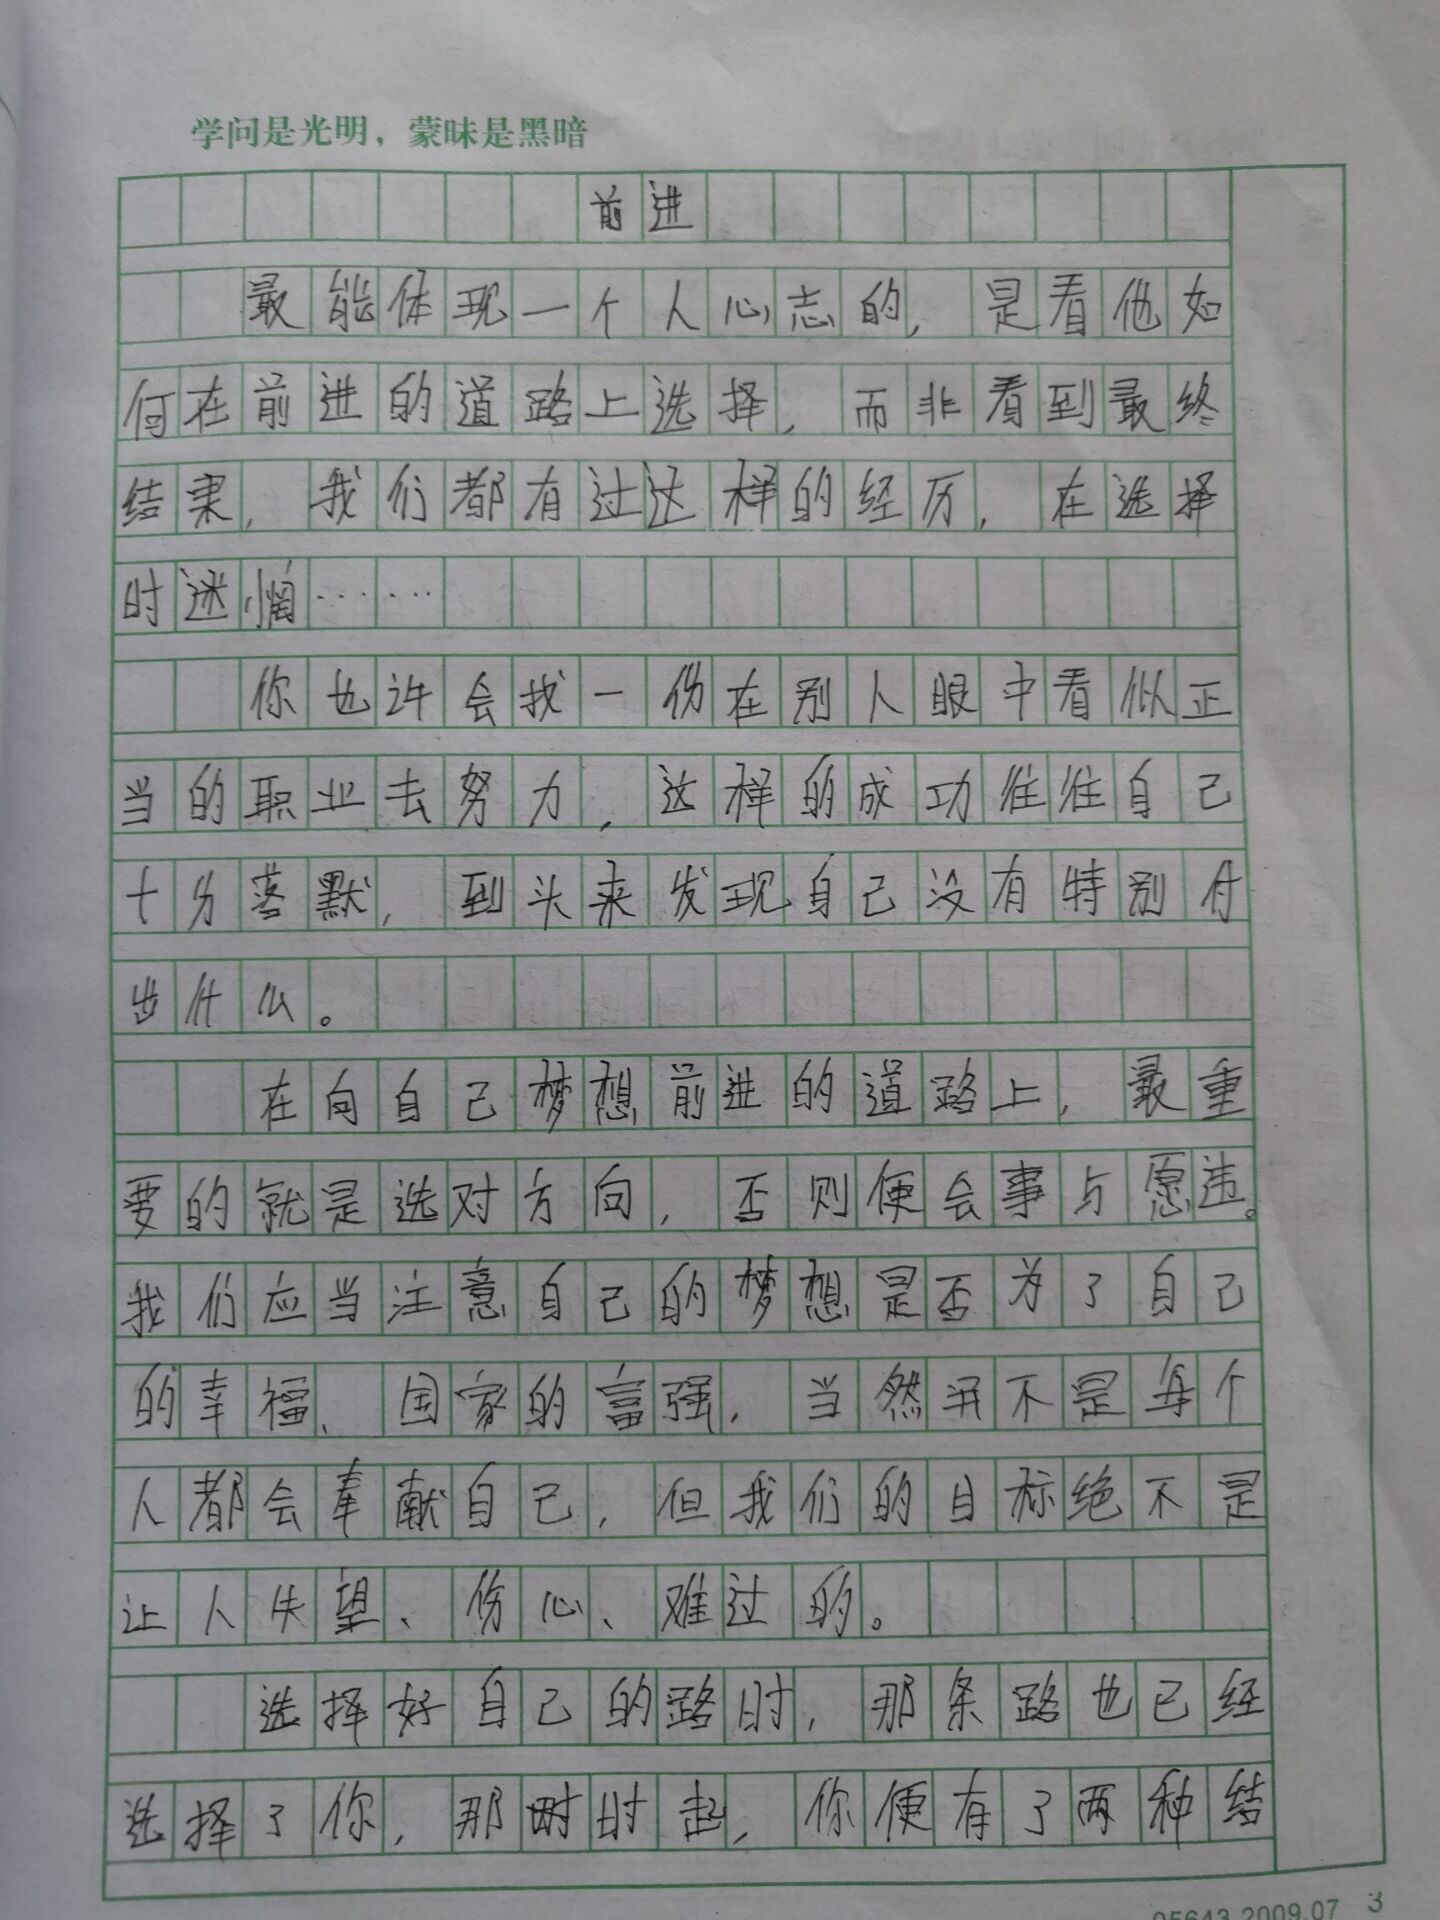 学问是光明，蒙昧是黑暗
前进
最能体现一个人心志的，是看他如
何在前进的道路上选择，而非看到最终
结果，我们都有过这样的经历，在选择
时迷惘……
你也许会找一份在别人眼中看似正
当的职业去努力，这样的成功往往自己
十分落默，到头来发现自己没有特别付
出什么。
在向自己梦想前进的道路上，最重
要的就是选对方向，否则便会事与愿违。
我们应当注意自己的梦想是否为了自己
的幸福、国家的富强，当然并不是每个
人都会奉献自己，但我们的目标绝不是
让人失望、伤心、难过的。
选择好自己的路时，那条路也已经
选择了你，那时起，你便有了两种结
05643 2009.07 3